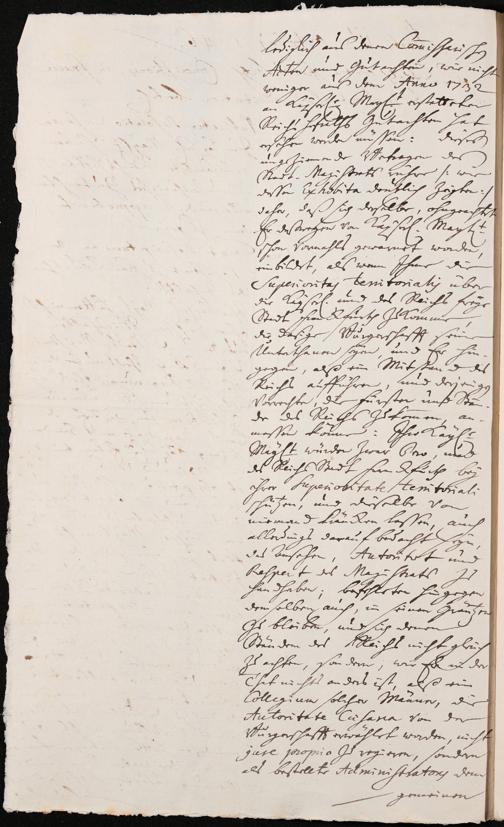 lediglich aus denen Commissarischen
Acten und Gutachten, wie nicht
weniger aus dem Anno 1732
an Kayserl. Mayt. erstatteten
Reichs Hofraths Gutachten hat
ersehen werden müssen: dieses
ungeziemende Betragen des
Stadt-Magistrats rühre /: wie
dessen Exhibita deutlich zeigten :/
daher, daß sich derselbe, ohngeachtet
Er deswegen von Kayserl. Mayt.
schon vormahls gewarnet worden,
einbildet, als wenn Ihme die
Superioritas territorialis über
die Kayserl. und des Reichs freye
Stadt Franckfurth zukomme
die dasige Bürgerschafft seine
Unterthanen seyen, und Er hin-
gegen, als ein Mit-Stand des
Reichs aufführen, und derjenigen
Vorrechte, die Fürsten und Stän-
de des Reichs zukomen, an-
massen könne: Ihro Kayserl.
Mayt. würden zwar Sie, und
des Reichs Stadt Franckfurth bey
ihrer Superioritate territoriali
schützen, und dieselbe von
niemand kräncken lassen, auch
allerdings darauf bedacht seyn,
das Ansehen, Autoritæt und
Respect des Magistrats zu
handhaben; befehleten hingegen
demselben auch, in seinen Gräntzen
zu bleiben, und sich denen
Ständen des Reichs nicht gleich
zu achten, sondern, wie Er in der
That nichts anders ist, als ein
Collegium solcher Männer, die
Autoritate Cæsarea von der
Bürgerschafft erwählet worden, nicht
jure proprio zu regieren, sondern
als bestellte Administratores dem
gemeinen